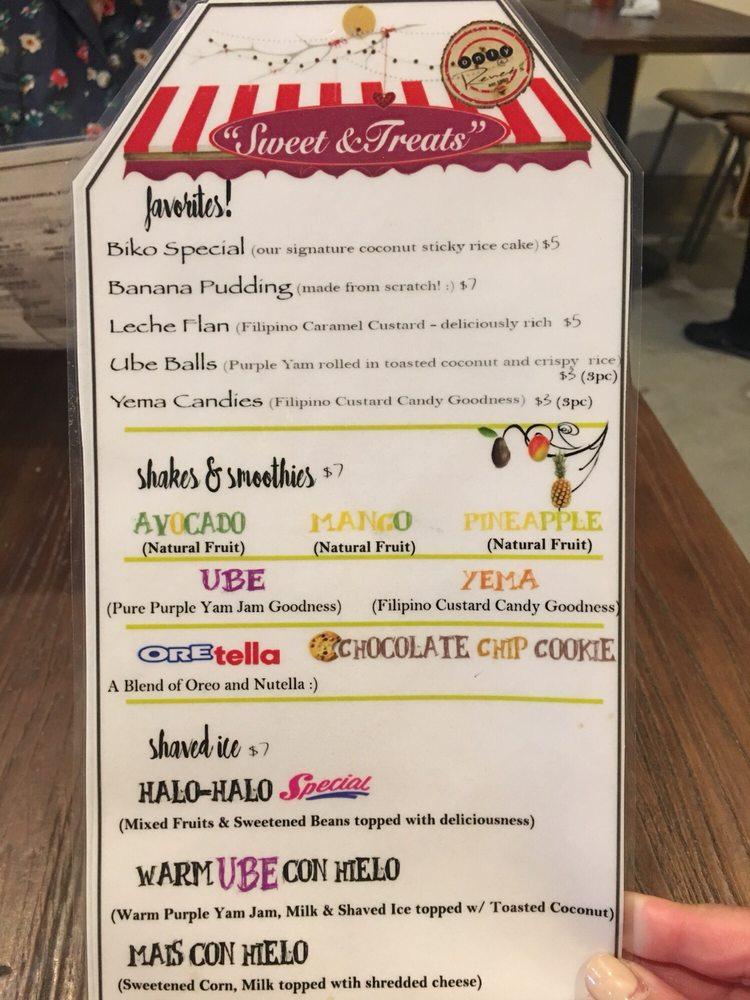 only
@
Rene's
"Sweet & Treats"
favorites!
Biko Special (our signature coconut sticky rice cake) $5
Banana Pudding (made from scratch! :) $7
Leche Flan (Filipino Caramel Custard - deliciously rich $5
Ube Balls (Purple Yam rolled in toasted coconut and crispy rice)
$3 (3pc)
Yema Candies (Filipino Custard Candy Goodness) $3 (3pc)
shakes & smoothies $7
AVOCADO MANGO PINEAPPLE
(Natural Fruit) (Natural Fruit) (Natural Fruit)
UBE YEMA
(Pure Purple Yam Jam Goodness) (Filipino Custard Candy Goodness)
OREtella CHOCOLATE CHIP COOKIE
A Blend of Oreo and Nutella :)
shaved ice $7
HALO-HALO Special
(Mixed Fruits & Sweetened Beans topped with deliciousness)
WARM UBE CON HIELO
(Warm Purple Yam Jam, Milk & Shaved Ice topped w/ Toasted Coconut)
MAIS CON HIELO
(Sweetened Corn, Milk topped wtih shredded cheese)